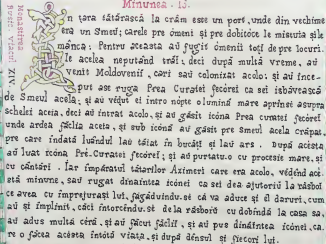 Minunea - 13.
În țara tătărască la crâm esse un port, unde din vechime
era un Smeu; carele pre ómeni și pre dobitóce le mistuia și le
mânca: Pentru aceasta au fugit ómenii toți de pre locuri-
le acelea neputând trăi; deci după multă vreme, au
venit Moldovenii, cari sau colonizat acolo; și au ince-
put ase ruga Prea Curatei fecióreĭ ca sei isbăvească
de Smeul acela; și au véḑut ei intro nópte o lumină mare aprinsă asupra
scheleĭ aceia, deci au intrat acolo, și au găsit icóna Prea curatei fecióreĭ
unde ardea făclia aceia, și sub icónă au găsit pre Smeul acela crăpat,
pre care indată luându-l lau tăiat in bucăți și lau ars. După acesta
au luat icóna Pré-Curatei fecióreĭ; și au purtatu-o cu procesie mare, și
cu cântări. Iar împăratul tătarilor Aximeri care era acolo, véḑénd acé-
stă minune, sau rugat dinaintea icóneĭ ca sei dea ajutoriu la răsboi
ce avea cu imprejurașii lui, făgăduindu-se că va aduce și el daruri, cum
au și implinit, căci intorcéndu-se dela răsboiŭ cu dobîndă la casa sa,
au adus multă céră, și au făcut făclii, și au pus dinaintea icóneĭ, ca-
re o făcea acesta intótă viața, și după dénsul și feciorĭ lui.
Monastirea
XIV